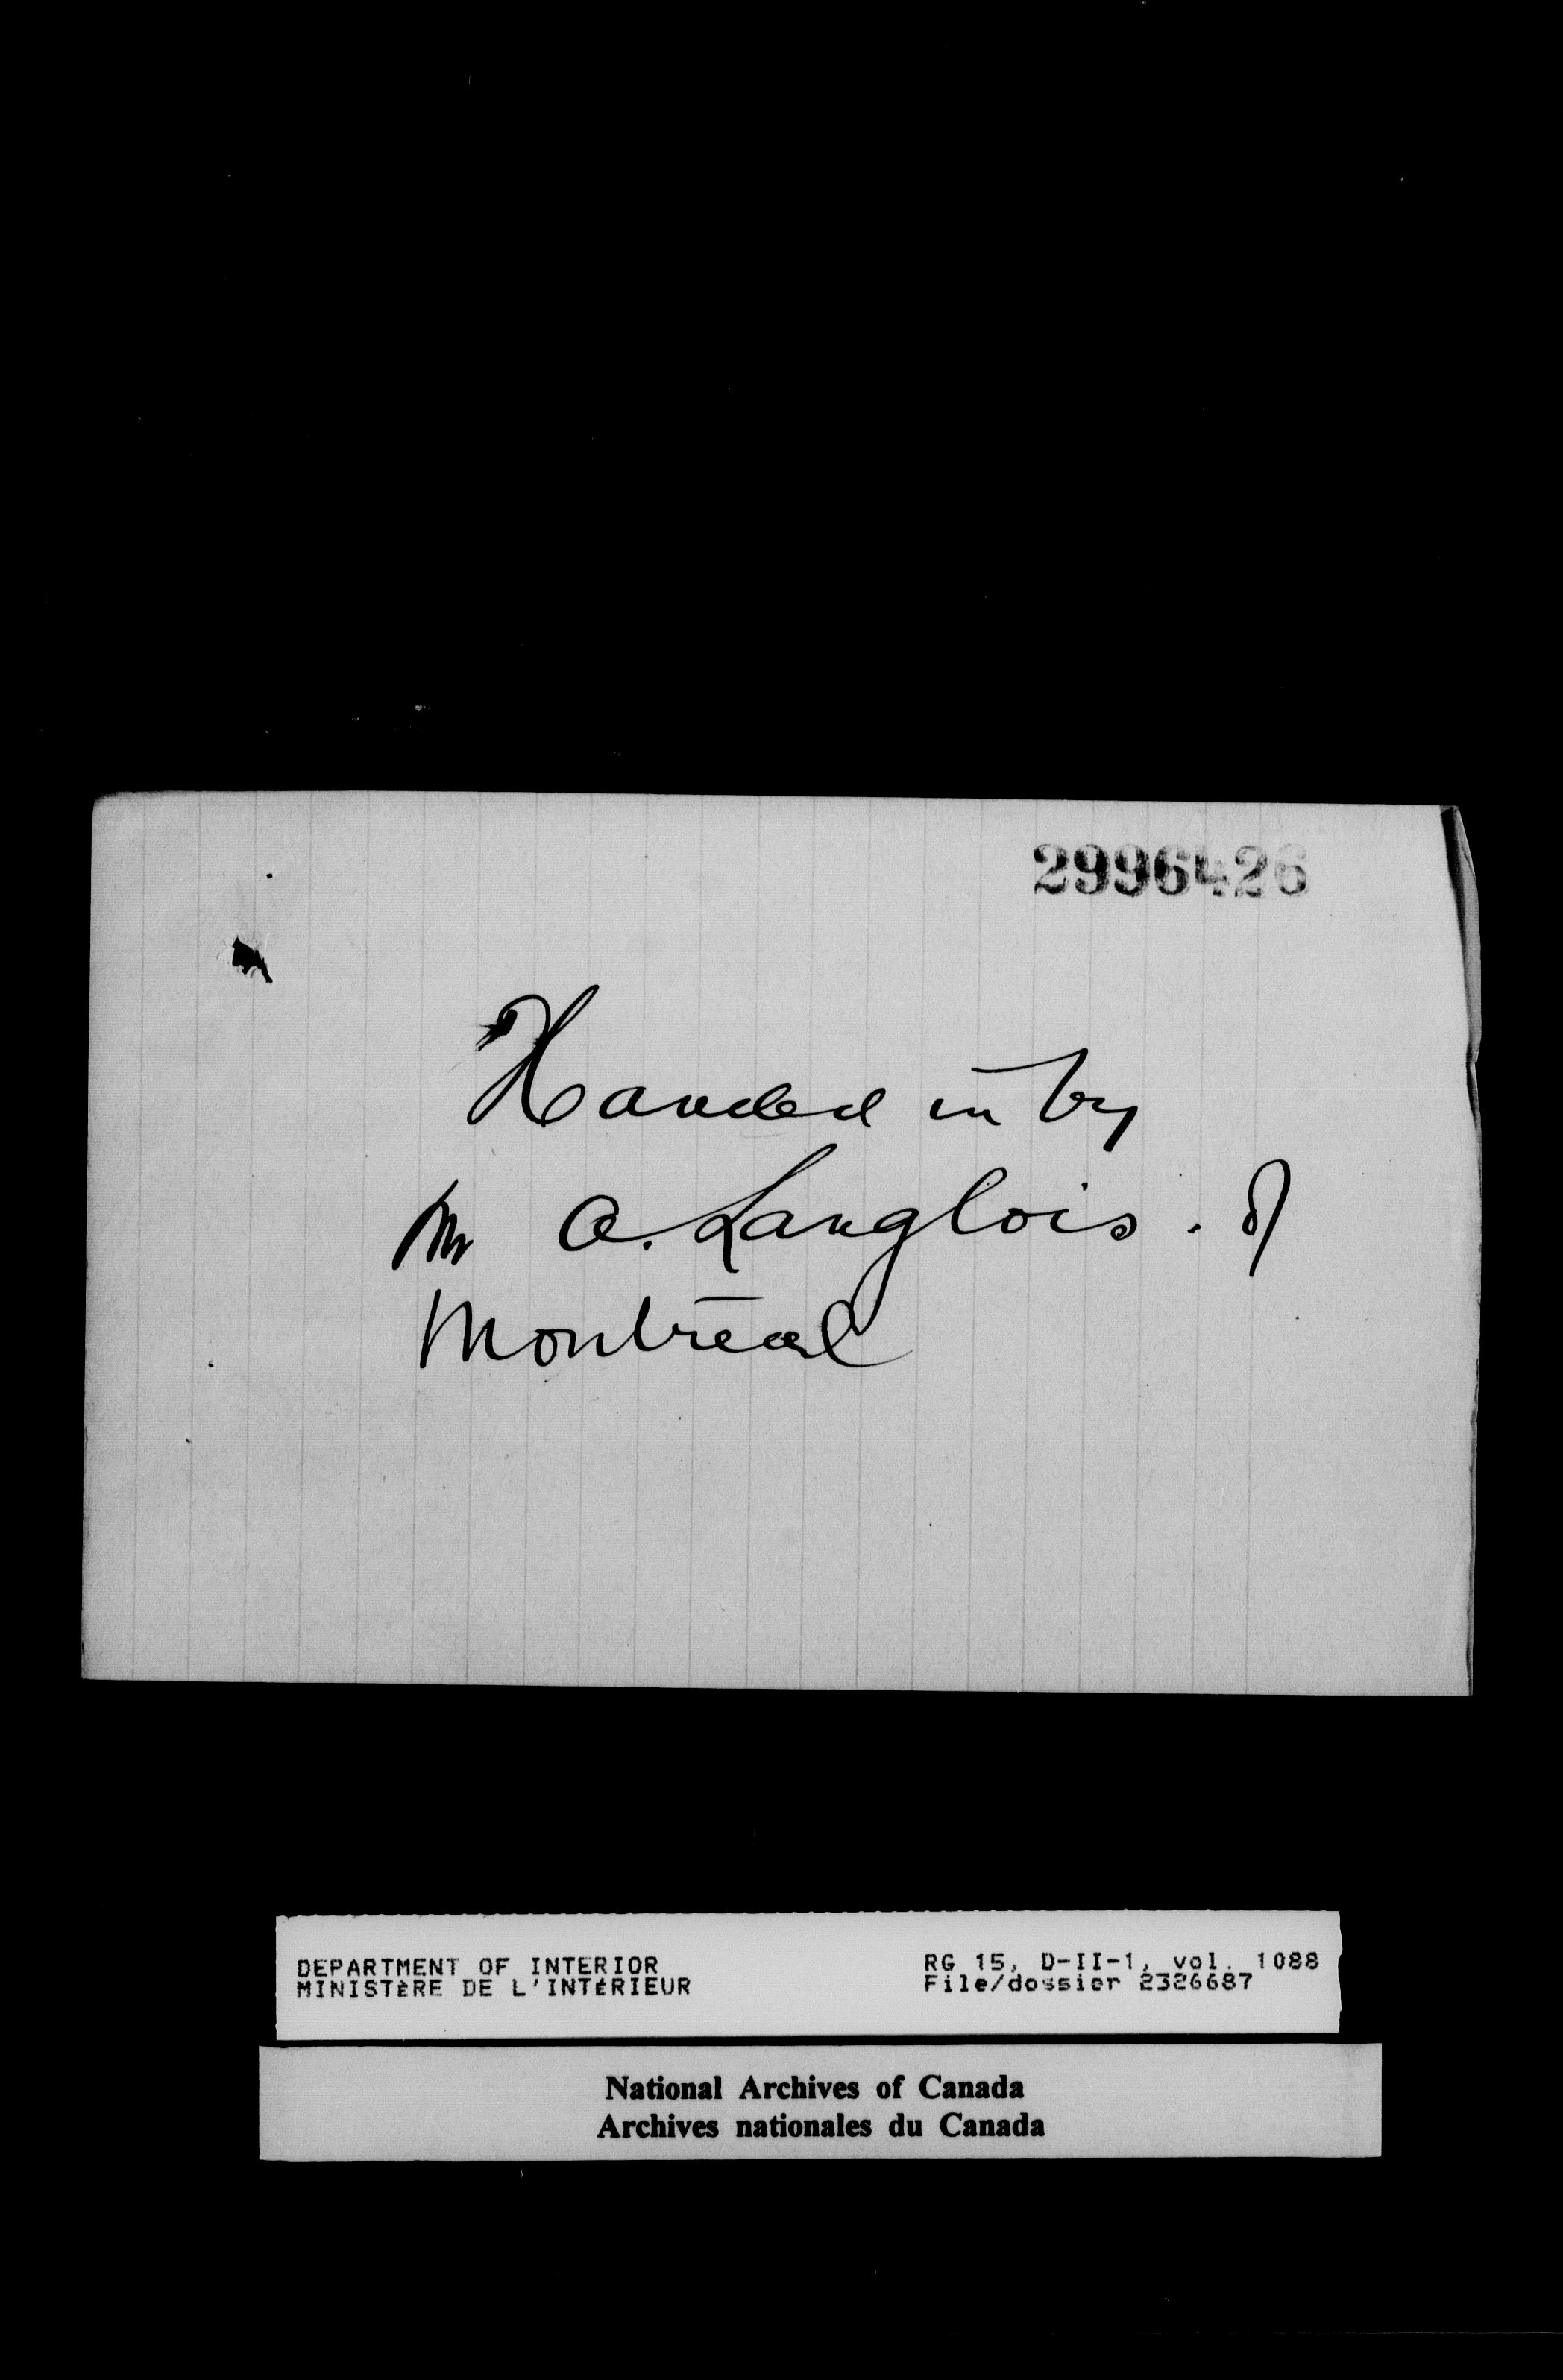 2996426
Handed in by
Mr A. Langlois. of
Montreal
DEPARTMENT OF INTERIOR
MINISTÈRE DE L'INTÉRIEUR
RG 15, D-II-1, vol. 1088
File/dossier 2326687
National Archives of Canada
Archives nationales du Canada